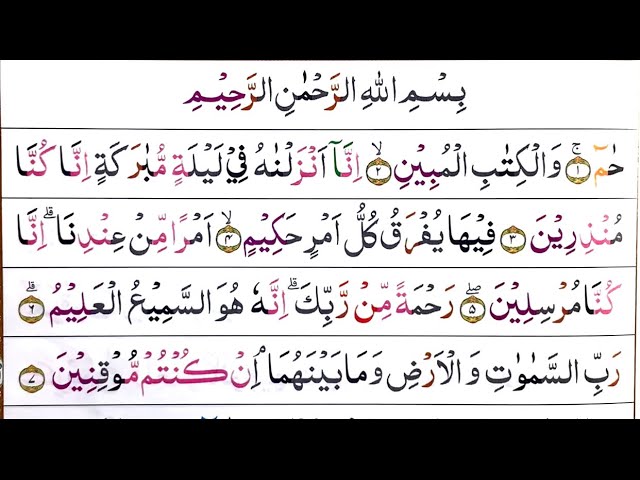 بِسْمِ اللهِ الرَّحْمٰنِ الرَّحِيْمِ
حٰمٓ ۚ﴿۱﴾ وَالْكِتٰبِ الْمُبِيْنِ ۙ﴿۲﴾ اِنَّاۤ اَنْزَلْنٰهُ فِيْ لَيْلَةٍ مُّبٰرَكَةٍ اِنَّا كُنَّا
مُنْذِرِيْنَ ﴿۳﴾ فِيْهَا يُفْرَقُ كُلُّ اَمْرٍ حَكِيْمٍ ۙ﴿۴﴾ اَمْرًا مِّنْ عِنْدِنَا ۗ اِنَّا
كُنَّا مُرْسِلِيْنَ ۚ﴿۵﴾ رَحْمَةً مِّنْ رَّبِّكَ ۗ اِنَّهٗ هُوَ السَّمِيْعُ الْعَلِيْمُ ۙ﴿۶﴾
رَبِّ السَّمٰوٰتِ وَالْاَرْضِ وَمَا بَيْنَهُمَا ۘ اِنْ كُنْتُمْ مُّوْقِنِيْنَ ﴿۷﴾